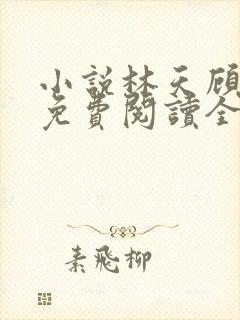 小說林天顧
免費閱讀全
素飛柳